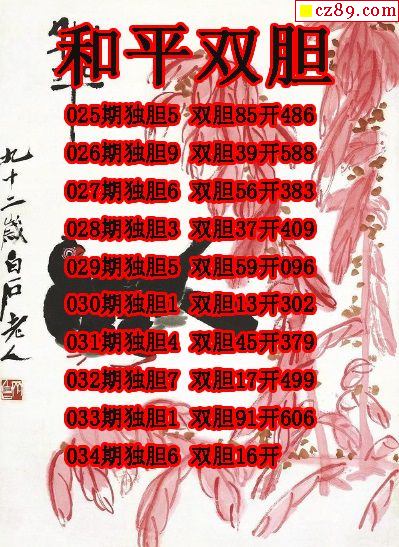 cz89.com
和平双胆
025期独胆5 双胆85开486
026期独胆9 双胆39开588
027期独胆6 双胆56开383
028期独胆3 双胆37开409
029期独胆5 双胆59开096
030期独胆1 双胆13开302
031期独胆4 双胆45开379
032期独胆7 双胆17开499
033期独胆1 双胆91开606
034期独胆6 双胆16开
九十二岁白石老人